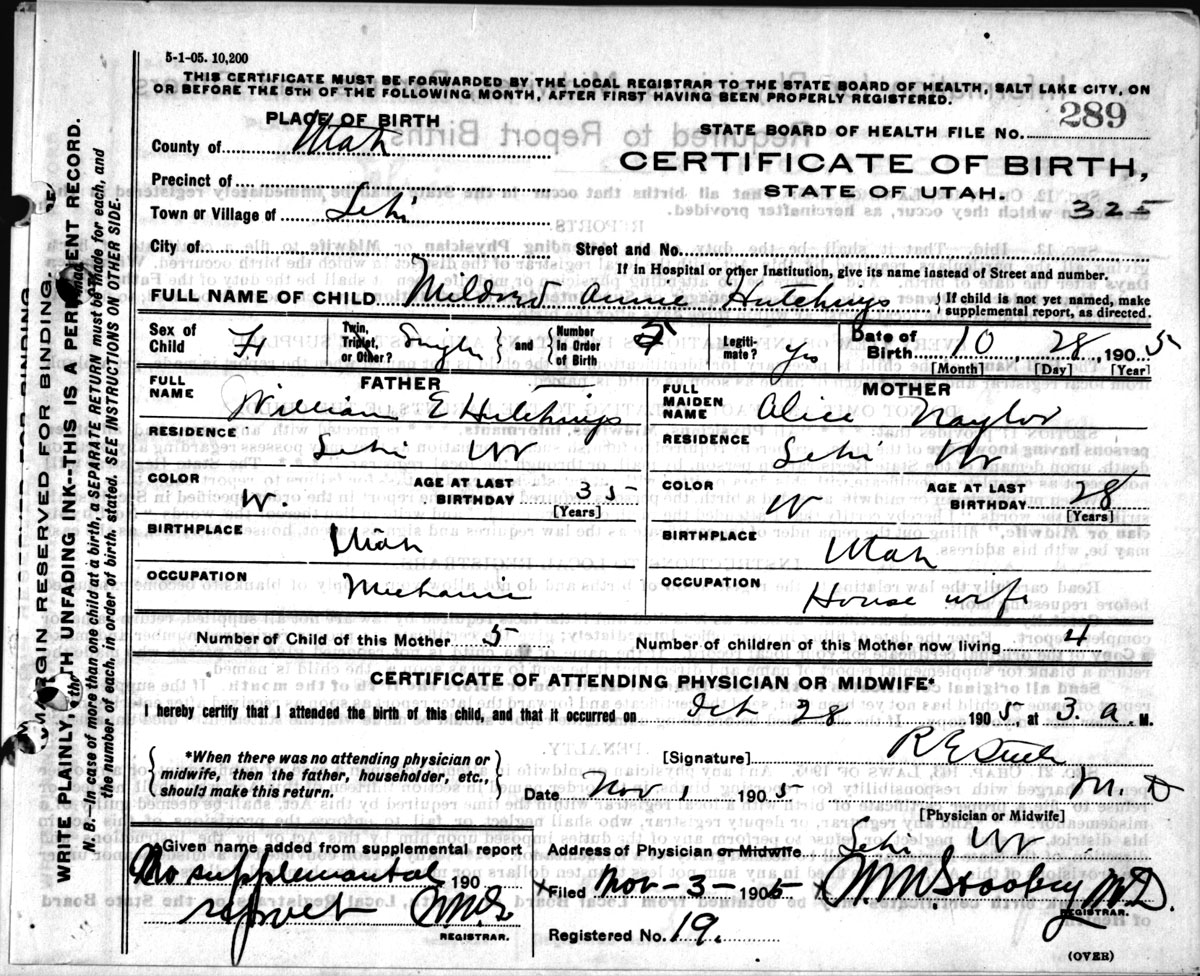 5-1-05. 10,200
THIS CERTIFICATE MUST BE FORWARDED BY THE LOCAL REGISTRAR TO THE STATE BOARD OF HEALTH, SALT LAKE CITY, ON
OR BEFORE THE 5TH OF THE FOLLOWING MONTH, AFTER FIRST HAVING BEEN PROPERLY REGISTERED.
PLACE OF BIRTH
STATE BOARD OF HEALTH FILE NO. 289
County of Utah
CERTIFICATE OF BIRTH,
Precinct of
STATE OF UTAH.
325
Town or Village of Lehi
City of
Street and No.
If in Hospital or other Institution, give its name instead of Street and number.
FULL NAME OF CHILD Mildred Annie Hutchings { If child is not yet named, make
supplemental report, as directed.
Sex of Child F Twin, Triplet, or Other? Single and Number in Order of Birth 5 Legitimate? yes Date of Birth 10 28, 1905
[Month] [Day] [Year]
FATHER
FULL NAME William E Hutchings
RESIDENCE Lehi Ut
COLOR W. AGE AT LAST BIRTHDAY 35
[Years]
BIRTHPLACE Utah
OCCUPATION Mechanic
MOTHER
FULL MAIDEN NAME Alice Naylor
RESIDENCE Lehi Ut
COLOR W AGE AT LAST BIRTHDAY 28
[Years]
BIRTHPLACE Utah
OCCUPATION House wife
Number of Child of this Mother 5 Number of children of this Mother now living 4
CERTIFICATE OF ATTENDING PHYSICIAN OR MIDWIFE*
I hereby certify that I attended the birth of this child, and that it occurred on Oct 28 1905, at 3. a. M.
*When there was no attending physician or
midwife, then the father, householder, etc.,
should make this return.
[Signature] R E Steele
Date Nov 1 1905 M. D
[Physician or Midwife]
Given name added from supplemental report
No supplemental 190
report
REGISTRAR.
Address of Physician or Midwife Lehi Ut
Filed Nov-3-1905 M.D.
REGISTRAR.
Registered No. 19.
(OVER)
MARGIN RESERVED FOR BINDING.
WRITE PLAINLY, WITH UNFADING INK—THIS IS A PERMANENT RECORD.
N. B.—In case of more than one child at a birth, a SEPARATE RETURN must be made for each, and
the number of each, in order of birth, stated. SEE INSTRUCTIONS ON OTHER SIDE.